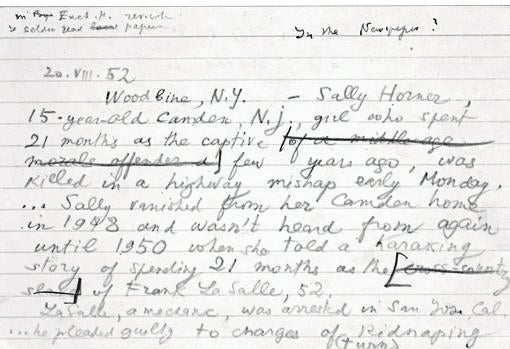 In the Newspaper?
seldom read papers
20.VIII.52
Woodbine, N.Y. - Sally Horner,
15-year-old Camden, N.J., girl who spent
21 months as the captive [of a middle-age
morals offender a] few years ago, was
killed in a highway mishap early Monday.
... Sally vanished from her Camden home
in 1948 and wasn't heard from again
until 1950 when she told a harassing
story of spending 21 months as the [cross-country
slave] of Frank LaSalle, 52.
LaSalle, a mechanic, was arrested in San Jose Cal.
...he pleaded guilty to charges of kidnaping
(turn)